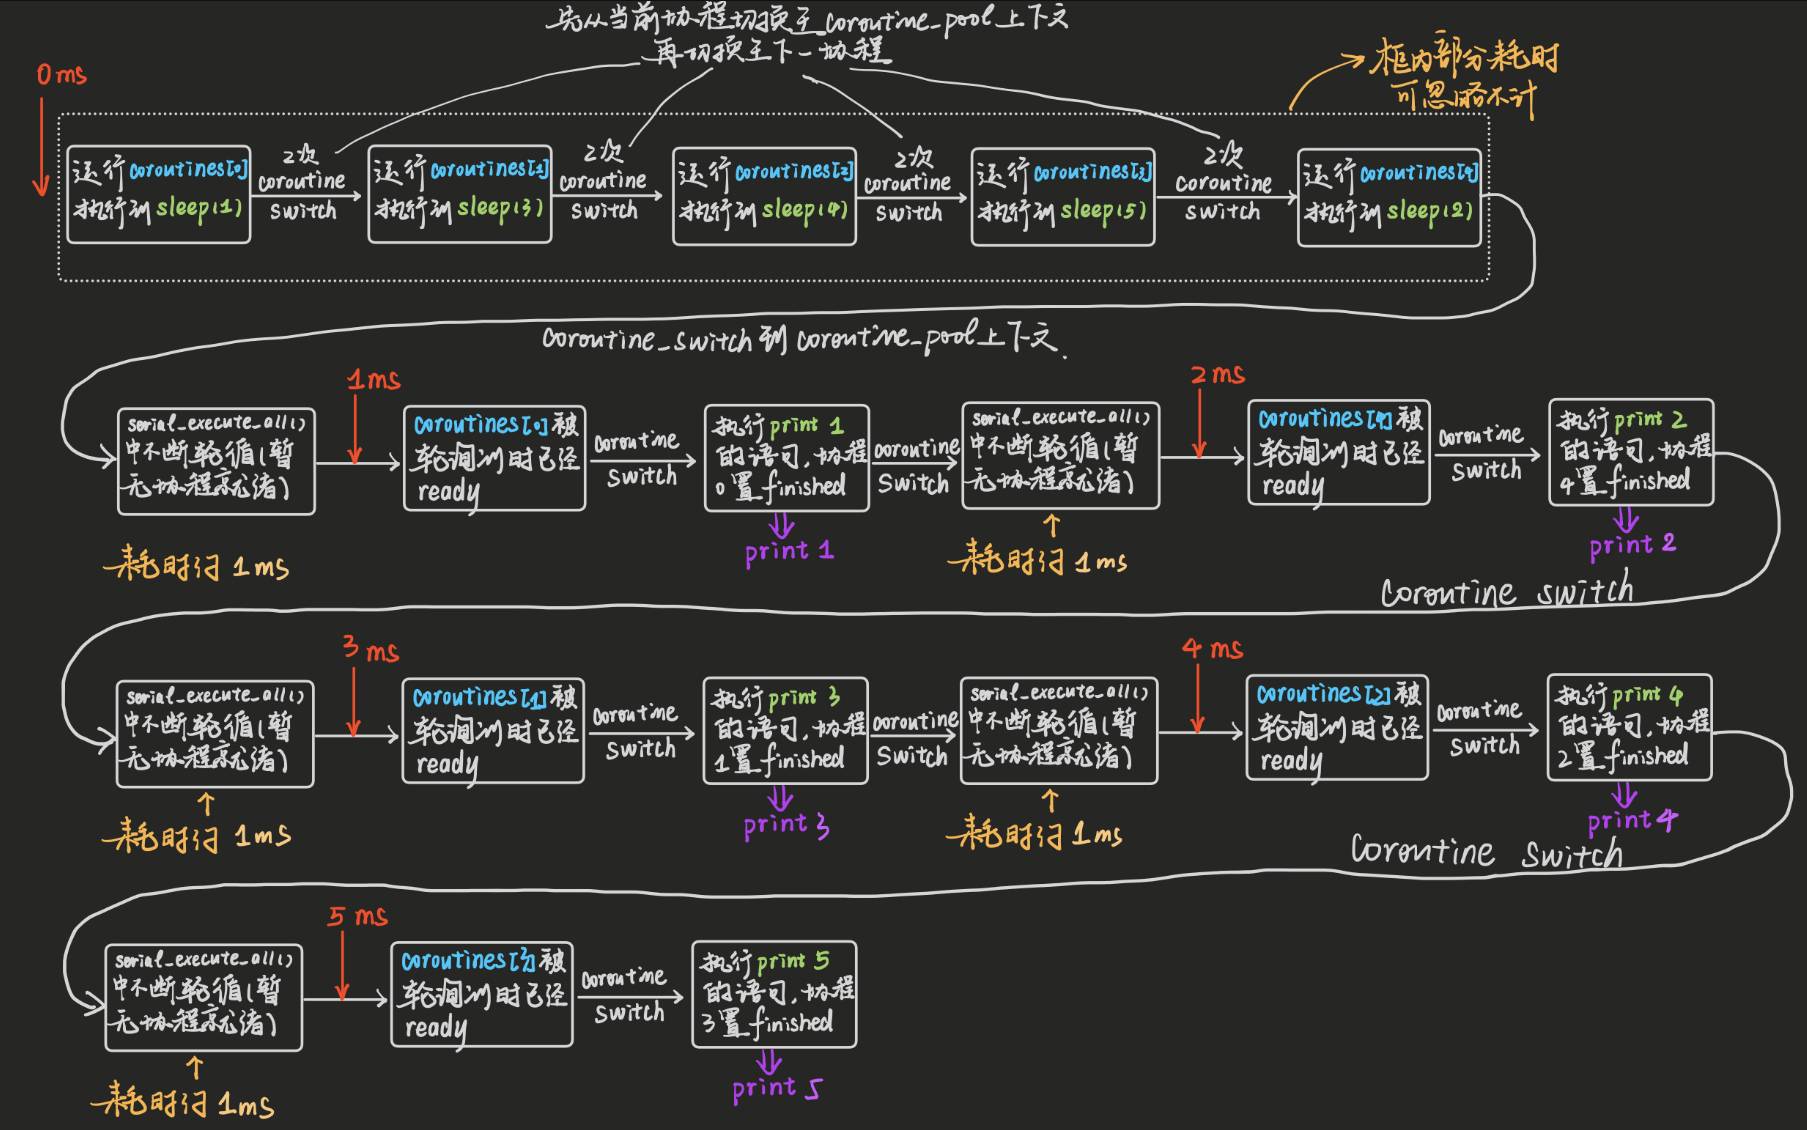 先从当前协程切换至coroutine_pool上下文
再切换至下一协程
0ms
框内部分耗时
可忽略不计
运行coroutines[0]
执行到sleep(1)
2次
coroutine
switch
运行coroutines[1]
执行到sleep(3)
2次
coroutine
switch
运行coroutines[2]
执行到sleep(4)
2次
coroutine
switch
运行coroutines[3]
执行到sleep(5)
2次
coroutine
switch
运行coroutines[4]
执行到sleep(2)
coroutine_switch到coroutine_pool上下文.
serial_execute_all()
中不断轮循(暂
无协程就绪)
耗时约1ms
1ms
coroutines[0]被
轮询到时已经
ready
coroutine
switch
执行print 1
的语句,协程
0置finished
print 1
coroutine
switch
serial_execute_all()
中不断轮循(暂
无协程就绪)
耗时约1ms
2ms
coroutines[4]被
轮询到时已经
ready
coroutine
switch
执行print 2
的语句,协程
4置finished
print 2
coroutine switch
serial_execute_all()
中不断轮循(暂
无协程就绪)
耗时约1ms
3ms
coroutines[1]被
轮询到时已经
ready
coroutine
switch
执行print 3
的语句,协程
1置finished
print 3
coroutine
switch
serial_execute_all()
中不断轮循(暂
无协程就绪)
耗时约1ms
4ms
coroutines[2]被
轮询到时已经
ready
coroutine
switch
执行print 4
的语句,协程
2置finished
print 4
coroutine switch
serial_execute_all()
中不断轮循(暂
无协程就绪)
耗时约1ms
5ms
coroutines[3]被
轮询到时已经
ready
coroutine
switch
执行print 5
的语句,协程
3置finished
print 5